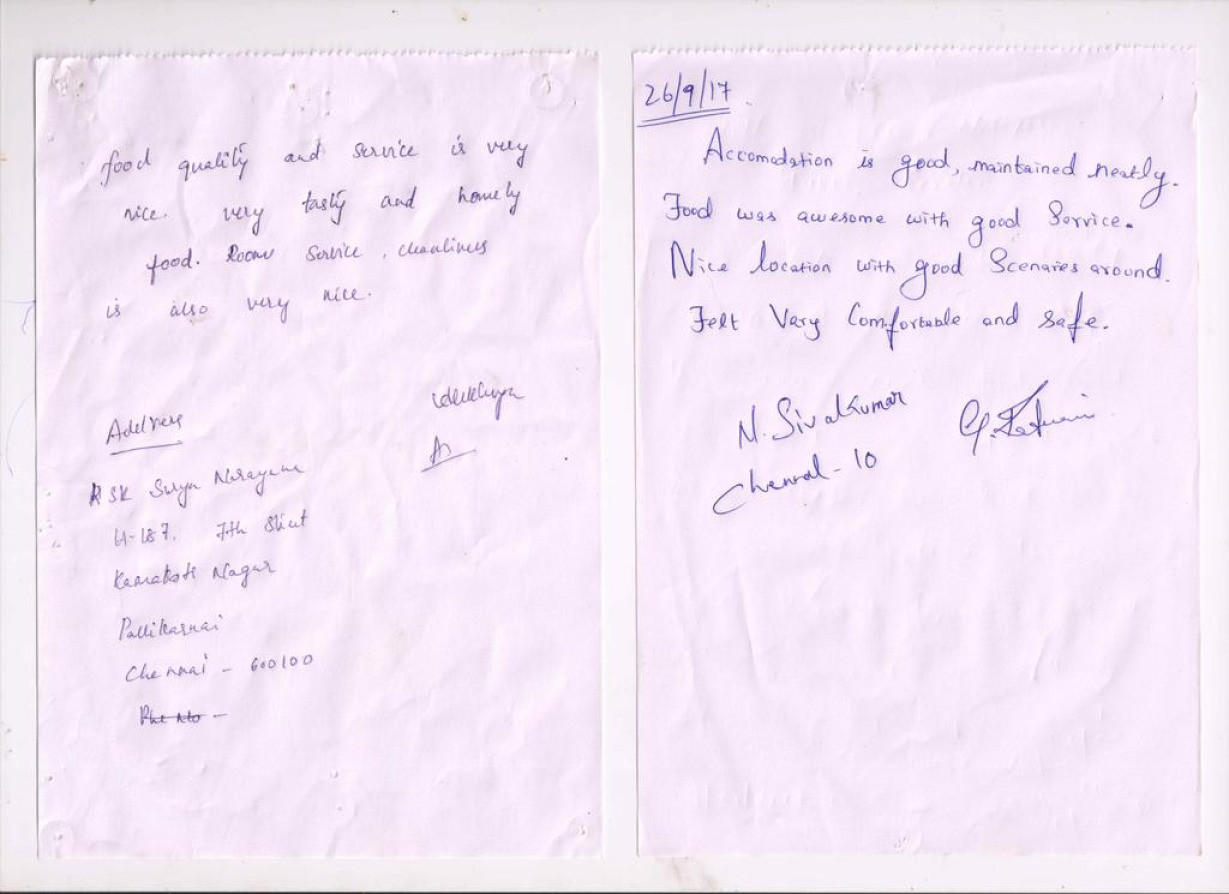 food quality and service is very
nice. very tasty and homely
food. Room service, cleanliness
is also very nice.
Address
SK Surya Narayana
7th Street
Kamakoti Nagar
Pallikarnai
Chennai - 600100
26/9/17
Accomodation is good, maintained neatly.
Food was awesome with good Service.
Nice location with good Scenaries around.
Felt Very Comfortable and safe.
N. Sivakumar
Chennai - 10